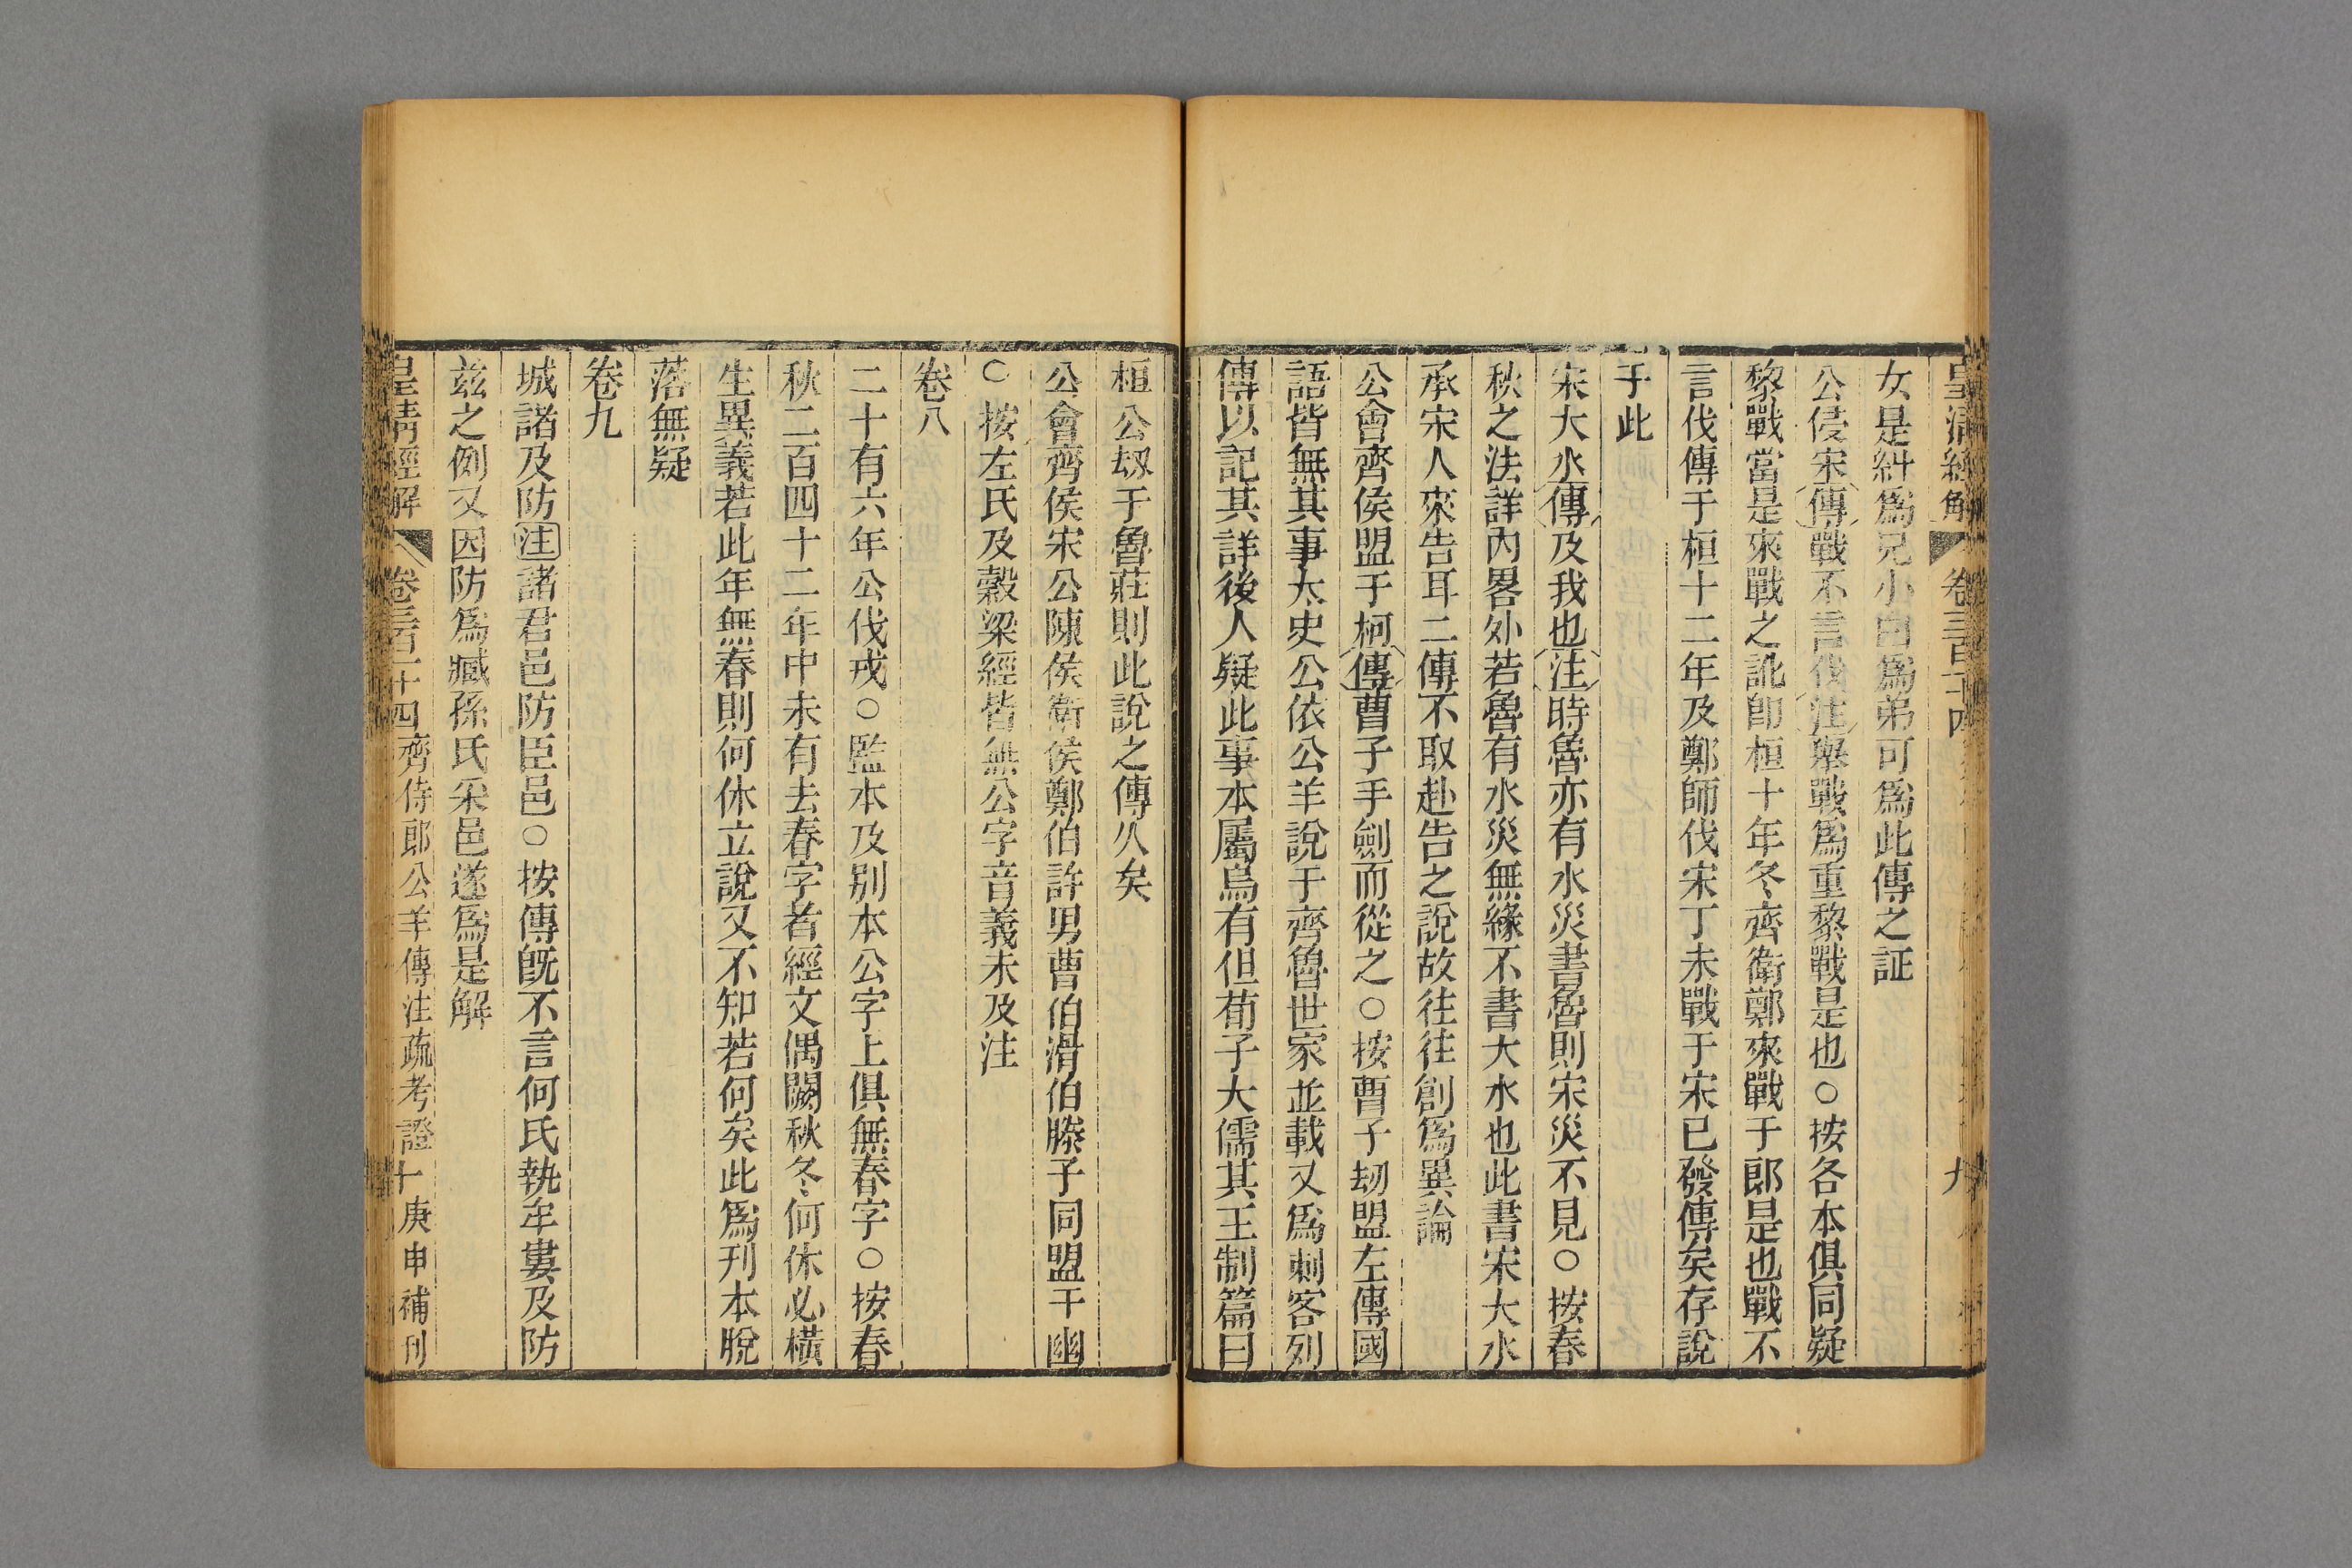 皇清經解 卷三百十四 九
女是糾爲兄小白爲弟可爲此傳之証
公侵宋傳戰不言伐注舉戰爲重黎戰是也○按各本俱同疑
黎戰當是來戰之訛卽桓十年冬齊衛鄭來戰于郎是也戰不
言伐傳于桓十二年及鄭師伐宋丁未戰于宋已發傳矣存說
于此
宋大水傳及我也注時魯亦有水災書魯則宋災不見○按春
秋之法詳內畧外若魯有水災無緣不書大水也此書宋大水
承宋人來告耳二傳不取赴告之說故往往創爲異論
公會齊侯盟于柯傳曹子手劍而從之○按曹子刼盟左傳國
語皆無其事太史公依公羊說于齊魯世家並載又爲刺客列
傳以記其詳後人疑此事本屬烏有但荀子大儒其王制篇曰
桓公刼于魯莊則此說之傳久矣
公會齊侯宋公陳侯衛侯鄭伯許男曹伯滑伯滕子同盟于幽
○按左氏及穀梁經皆無公字音義未及注
卷八
二十有六年公伐戎○監本及别本公字上俱無春字○按春
秋二百四十二年中未有去春字者經文偶闕秋冬何休必橫
生異義若此年無春則何休立說又不知若何矣此爲刊本脫
落無疑
卷九
城諸及防注諸君邑防臣邑○按傳旣不言何氏執牟婁及防
茲之例又因防爲臧孫氏采邑遂爲是解
皇清經解 卷三百十四 齊侍郎公羊傳注疏考證 十 庚申補刊